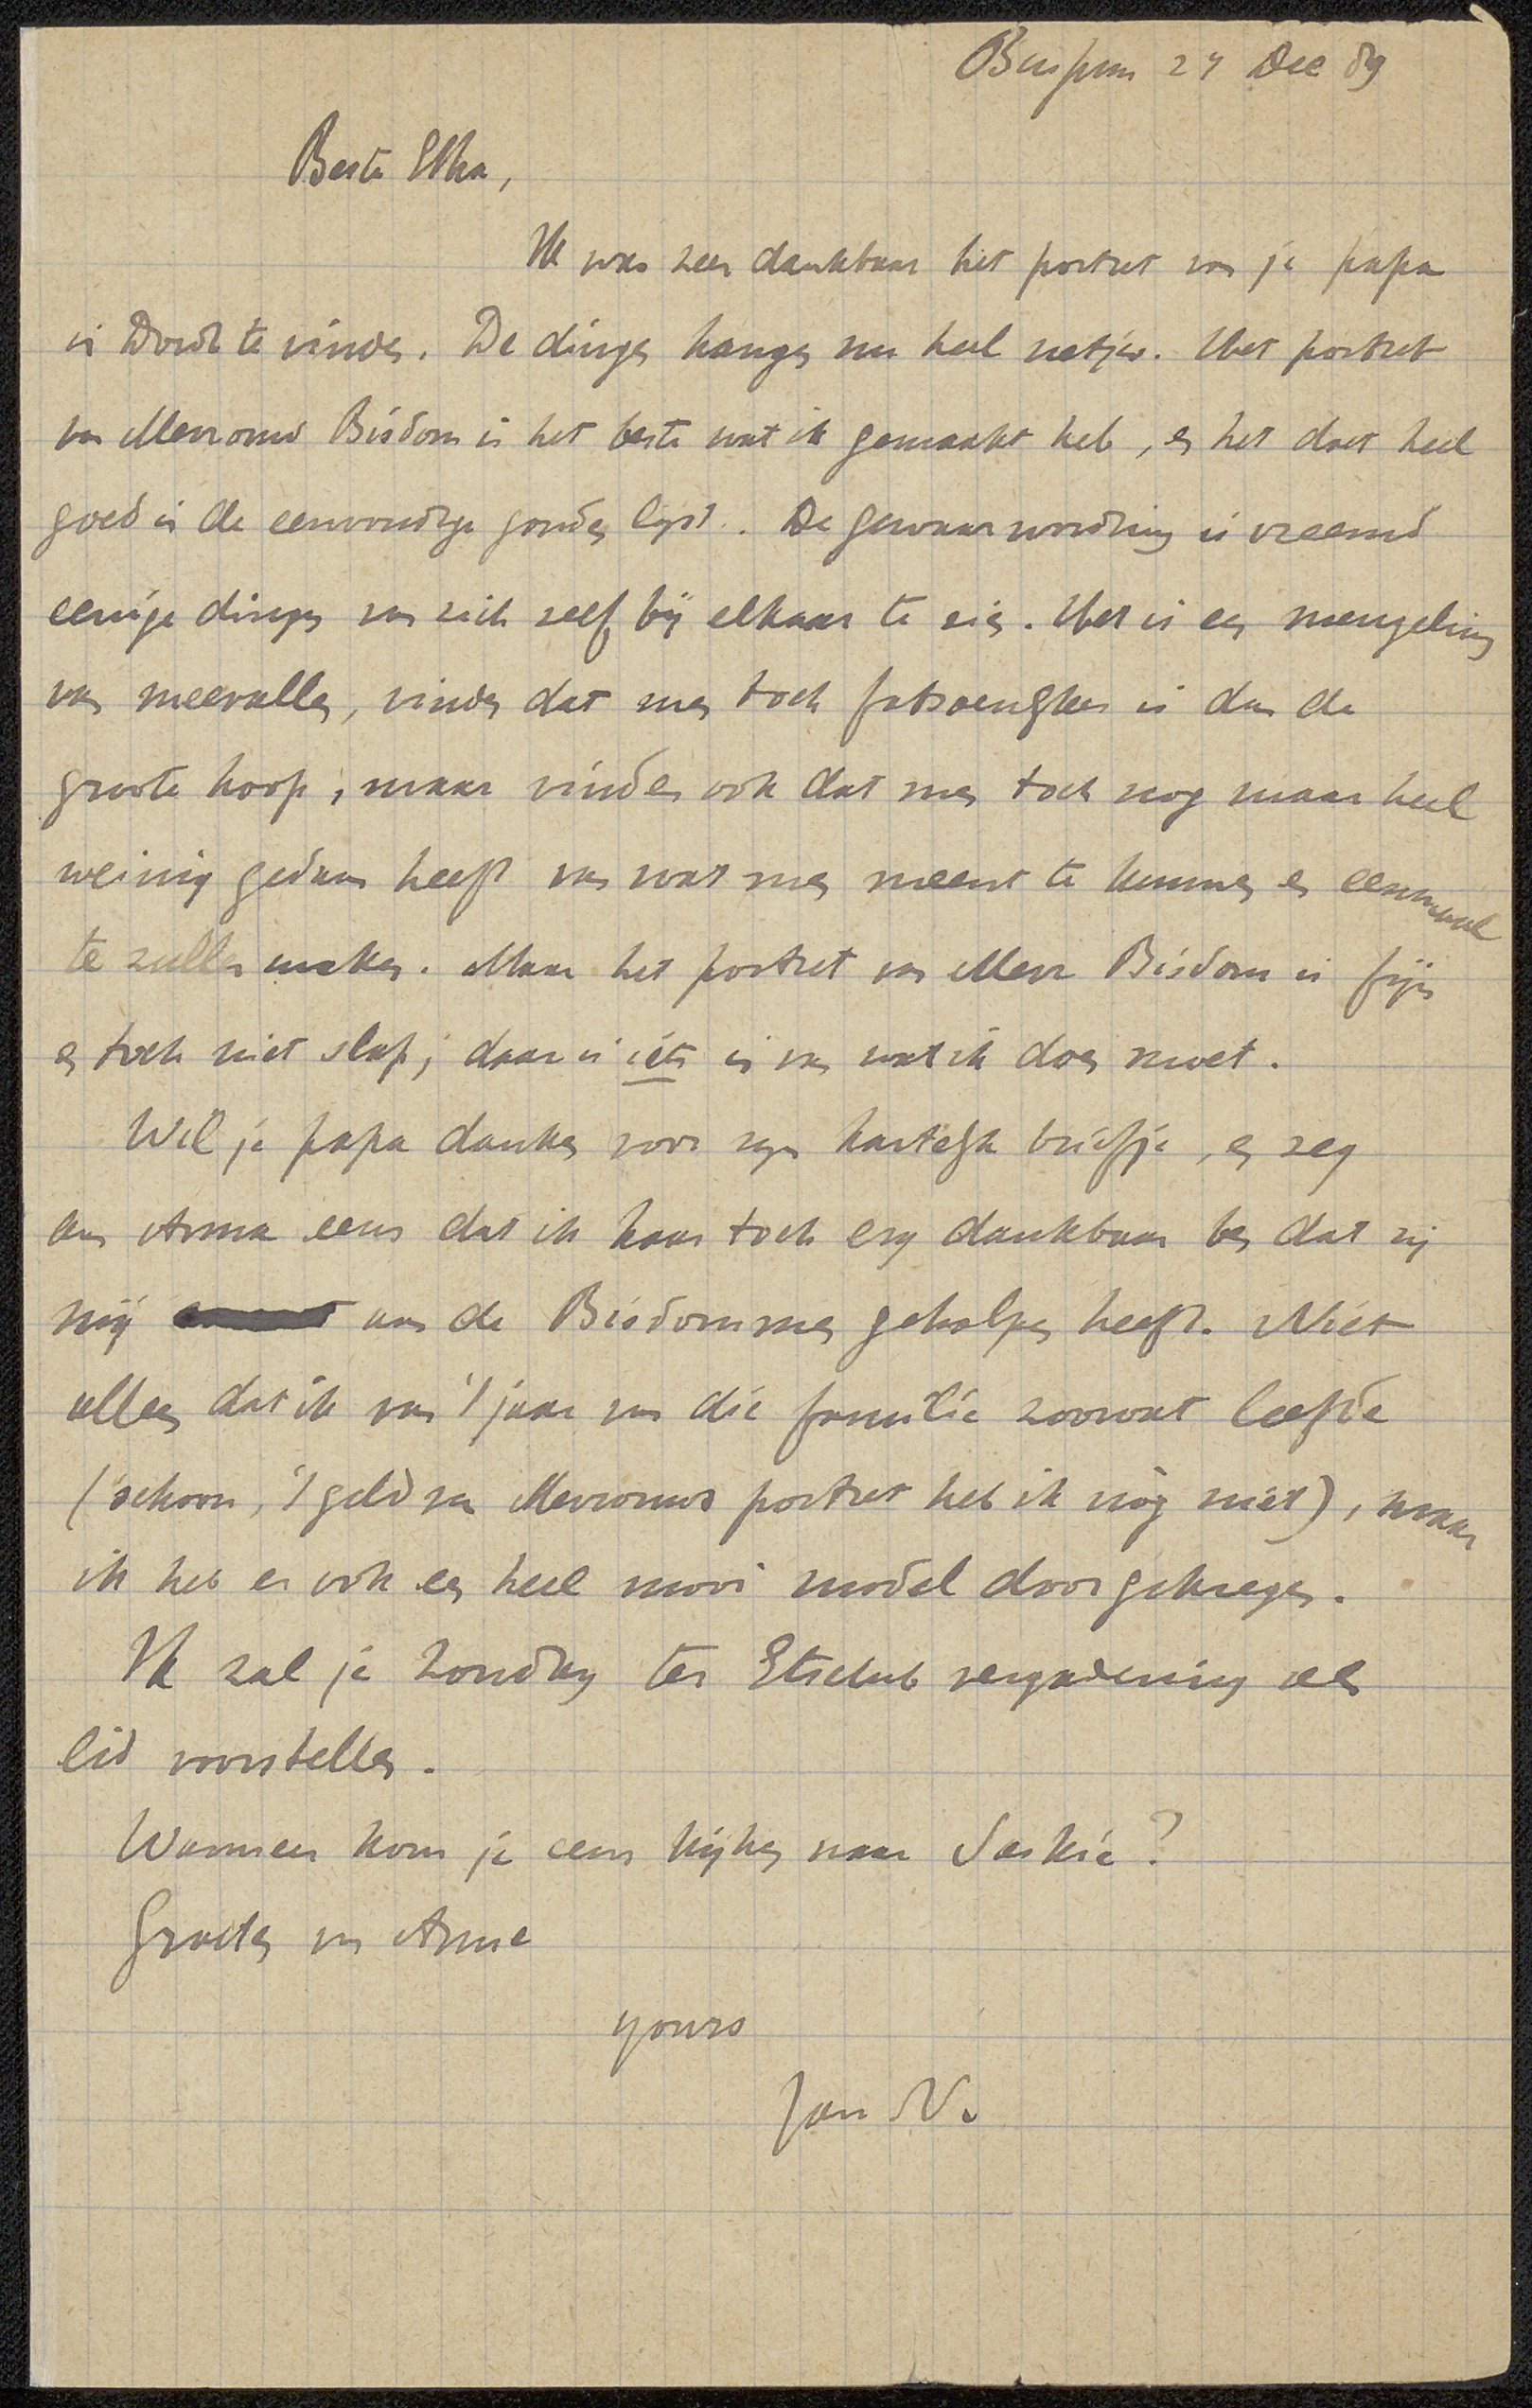 Bussum 24 Dec 89
Beste Etha,
Ik was zeer dankbaar het portret van je papa
in Dordt te vinden. De dingen hangen nu heel netjes. Het portret
van Mevrouw Bisdom is het beste wat ik gemaakt heb, en het doet heel
goed in de eenvoudige gouden lijst. De gewaarwording is vreemd
eenige dingen van zich zelf bij elkaar te zien. Het is een mengeling
van meevallen, vinden dat men toch fatsoenlijker is dan de
groote hoop, maar vinden ook dat men toch nog maar heel
weinig gedaan heeft van wat men meent te kunnen en eenmaal
te zullen maken. Maar het portret van Mevr Bisdom is fijn
en toch niet slap; daar is iets in van wat ik doen moet.
Wil je papa danken voor zijn hartelijk briefje, en zeg
aan Anna eens dat ik haar toch erg dankbaar ben dat zij
mij aan de Bisdommen geholpen heeft. Niet
alleen dat ik van 't jaar van die familie zoowat leefde
(schoon, 't geld van Mevrouws portret heb ik nòg niet), maar
ik heb er ook een heel mooi model door gekregen.
Ik zal je Zondag ter Etsclub vergadering als
lid voorstellen.
Wanneer kom je eens kijken naar Saskia?
Groeten van Anna
yours
Jan V.